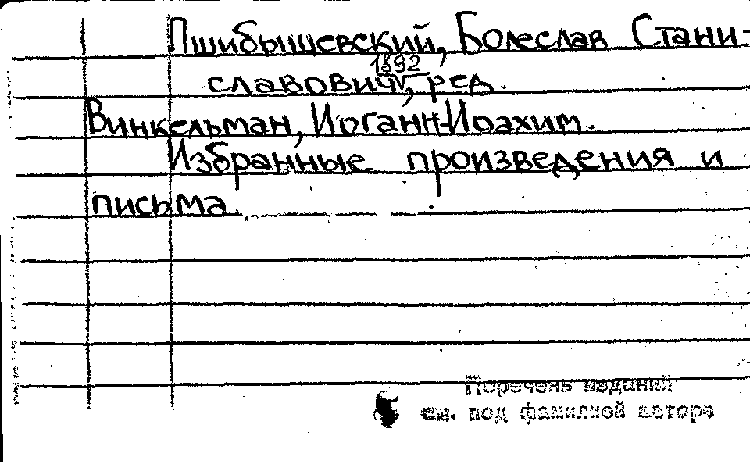 Пшибышевский, Болеслав Стани-
1892
славович, ред.
Винкельман, Иоганн-Иоахим.
Избранные произведения и
письма.
Перечень изданий
см. под фамилией автора